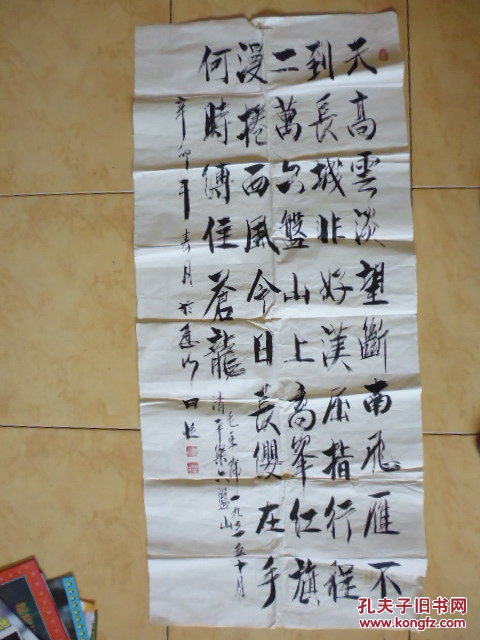 天高雲淡望斷南飛雁不
到長城非好漢屈指行程
二萬六盤山上高峯紅旗
漫捲西風今日長纓在手
何時縛住蒼龍
毛主席一九三五十月
清平樂六盤山
辛卯年春月於
孔夫子旧书网
KONGFZ.COM